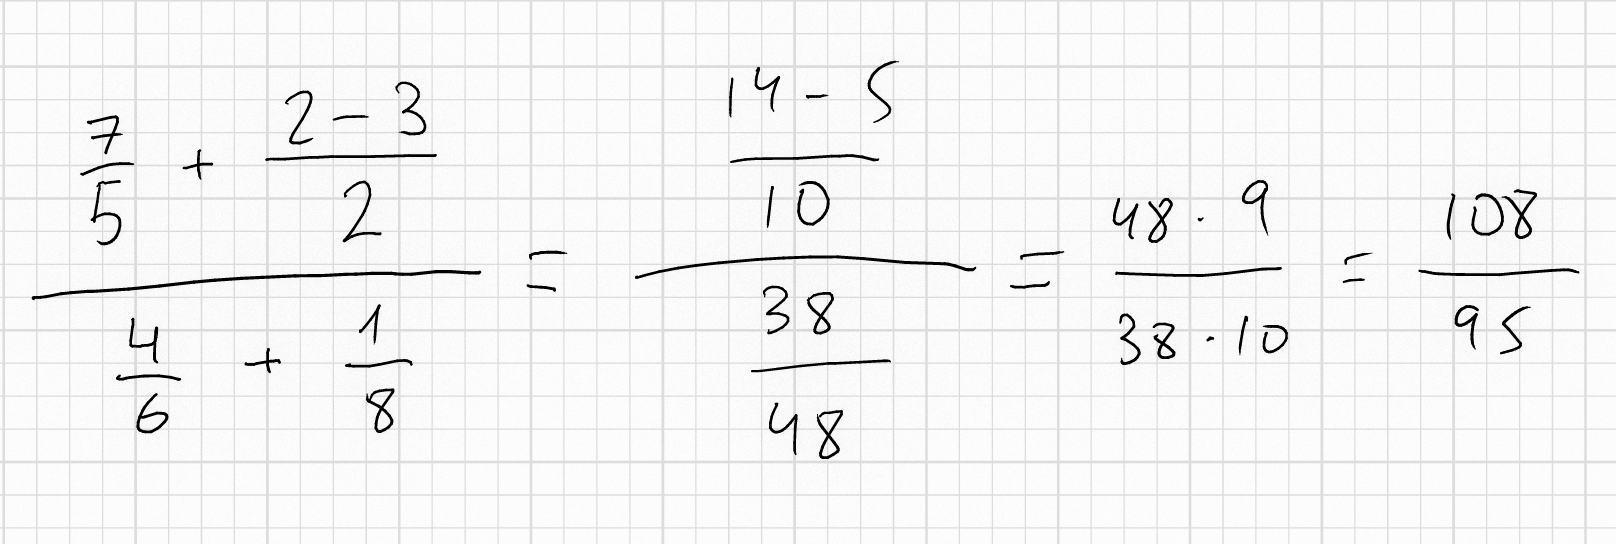 \frac{\frac{7}{5} + \frac{2-3}{2}}{\frac{4}{6} + \frac{1}{8}} = \frac{\frac{14-5}{10}}{\frac{38}{48}} = \frac{48 \cdot 9}{38 \cdot 10} = \frac{108}{95}